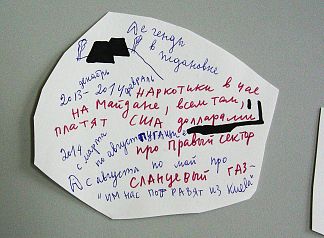 Легенды
в Ждановке
декабрь февраль
2013-2014 наркотики в чае
на Майдане, всем там,
платят США долларами
2014 с марта по август пугащие
про правый сектор
с августа по май про
сланцевый газ-
"им нас потравят из Киева"